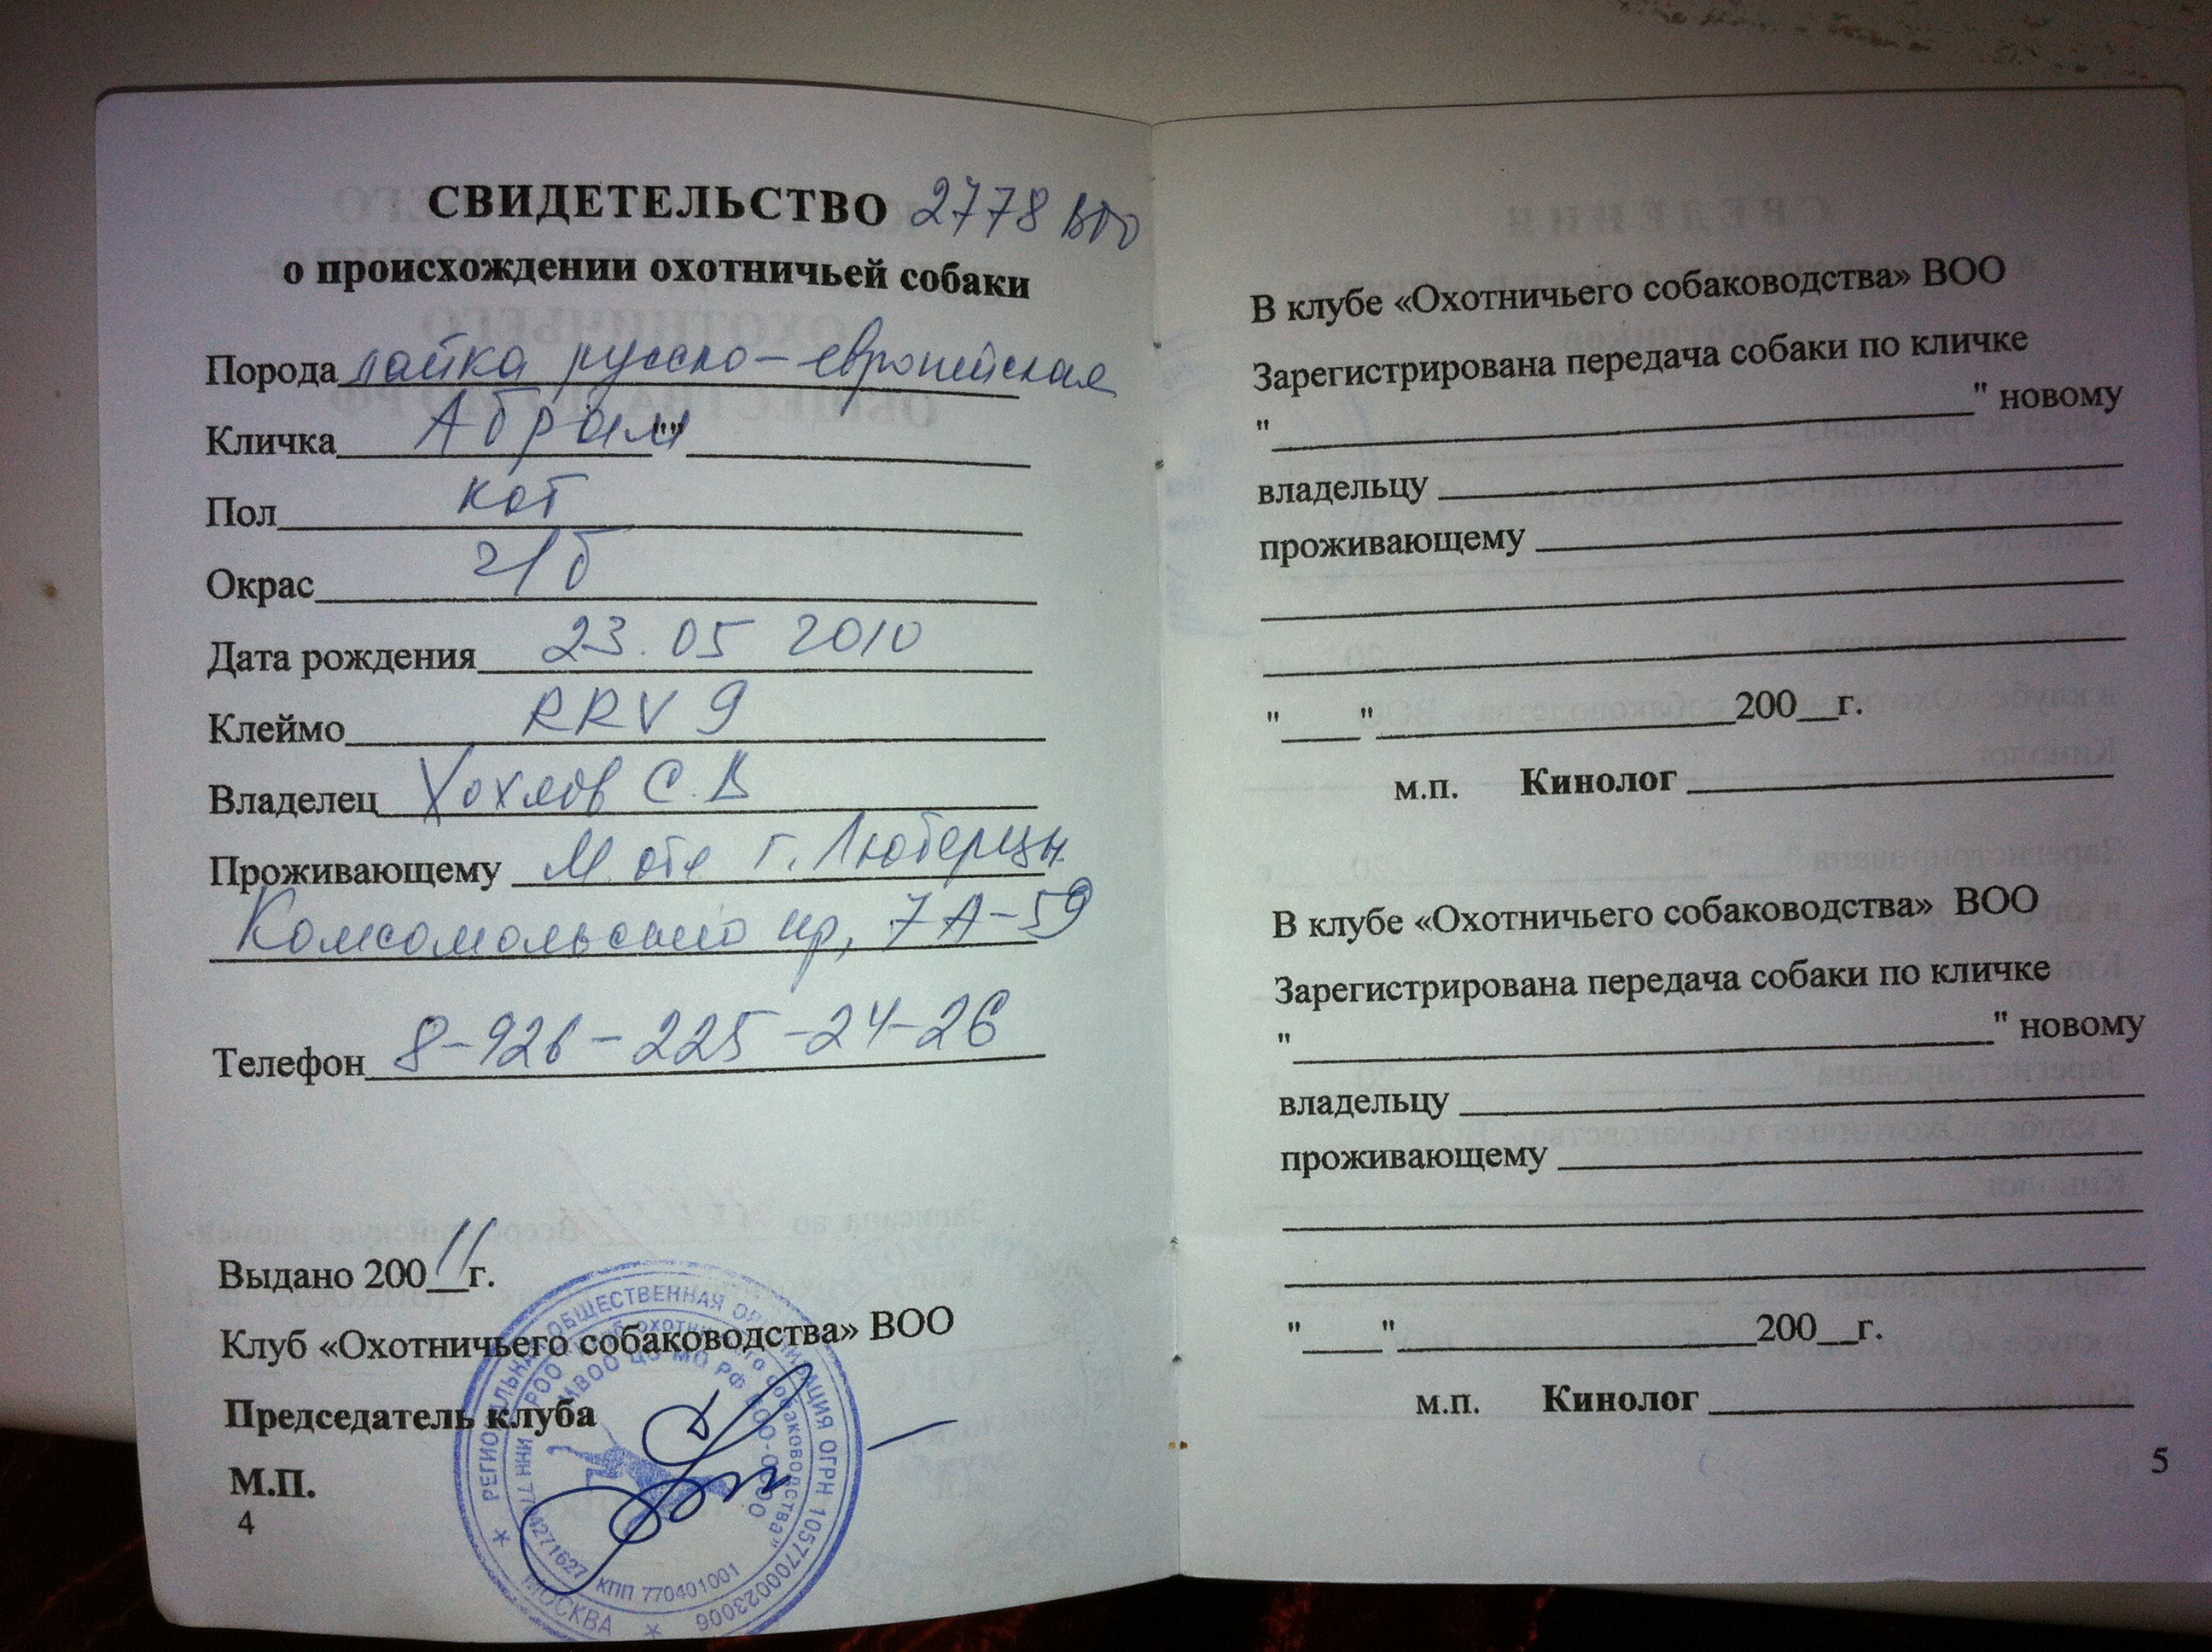 СВИДЕТЕЛЬСТВО 2778 ВОО
о происхождении охотничьей собаки
Порода лайка русско-европейская
Кличка Абрам ""
Пол кот
Окрас ч/б
Дата рождения 23.05 2010
Клеймо RRV 9
Владелец Хохлов С.В
Проживающему М. обл г. Люберцы.
Комсомольский пр, 7А-59
Телефон 8-926-225-24-26
Выдано 200 11 г.
Клуб «Охотничьего собаководства» ВОО
Председатель клуба
М.П.
4
РЕГИОНАЛЬНАЯ ОБЩЕСТВЕННАЯ ОРГАНИЗАЦИЯ ОГРН 1057700023006
* МОСКВА *
КПП 770401001
В клубе «Охотничьего собаководства» ВОО
Зарегистрирована передача собаки по кличке
"____" новому
владельцу
проживающему
"____"____200__г.
м.п. Кинолог
В клубе «Охотничьего собаководства» ВОО
Зарегистрирована передача собаки по кличке
"____" новому
владельцу
проживающему
"____"____200__г.
м.п. Кинолог
5